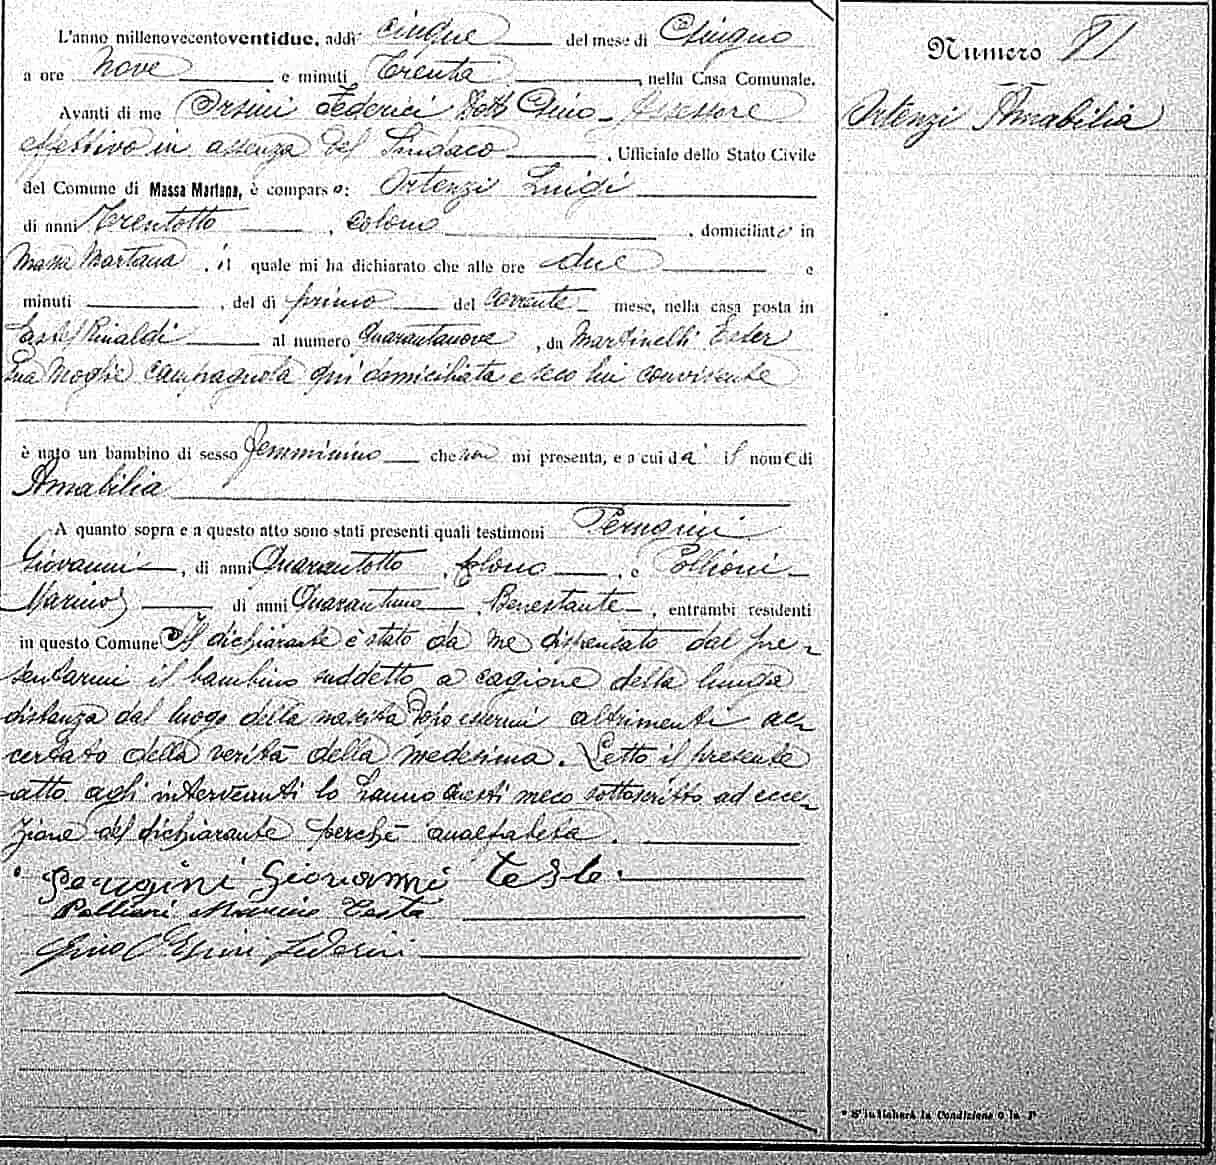 L'anno millenovecentoventidue, addì cinque del mese di Giugno
a ore Nove e minuti Trenta, nella Casa Comunale.
Avanti di me Orsini Federici Dott Gino - Assessore
effettivo in assenza del Sindaco, Ufficiale dello Stato Civile
del Comune di Massa Martana, è comparso: Ortenzi Luigi
di anni Trentotto, colono, domiciliato in
Massa Martana, il quale mi ha dichiarato che alle ore due e
minuti, del dì primo del corrente mese, nella casa posta in
Castel Rinaldi al numero Quarantanove, da Martinelli Ester
Sua Moglie campagnola qui domiciliata e seco lui convivente
è nato un bambino di sesso femminino che non mi presenta, e a cui dà il nome di
Amabilia
A quanto sopra e a questo atto sono stati presenti quali testimoni Perugini
Giovanni, di anni Quarantotto, colono, e Pollioni
Marino di anni Quarantuno, Benestante, entrambi residenti
in questo Comune Il dichiarante è stato da me dispensato dal pre-
sentarmi il bambino suddetto a cagione della lunga
distanza dal luogo della nascita dopo essermi altrimenti ac-
certato della verità della medesima. Letto il presente
atto agli intervenuti lo hanno questi meco sottoscritto ad ecce-
zione del dichiarante perchè analfabeta.
Perugini Giovanni teste.
Pollioni Marino Teste
Gino Orsini Federici
Numero 81
Ortenzi Amabilia
* S'indicherà la Condizione o la P